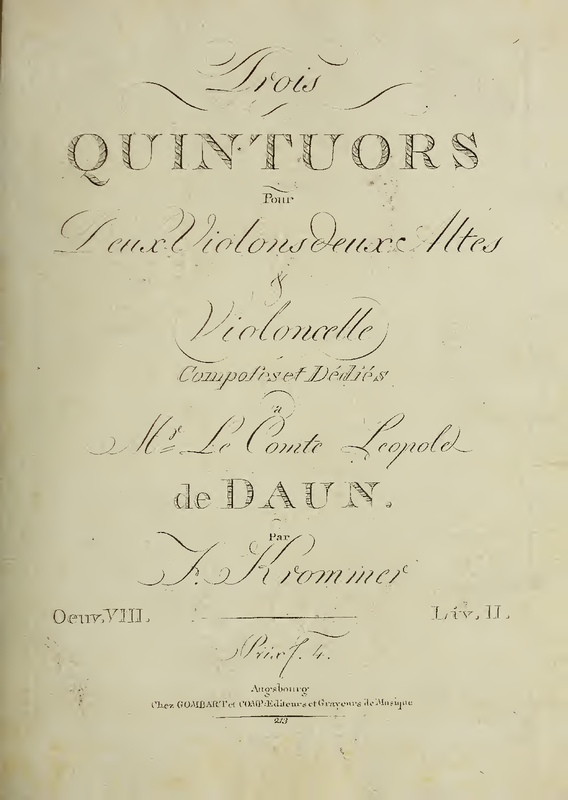 Trois
QUINTUORS
Pour
Deux Violons deux Altes
&
Violoncelle
Composés et Dédiés
a
Mr. Le Comte Leopold
de DAUN.
Par
F. Krommer
Oeuv. VIII. Liv. II.
Prix f. 4.
Augsbourg
Chez GOMBART et COMP: Editeurs et Graveurs de Musique
213